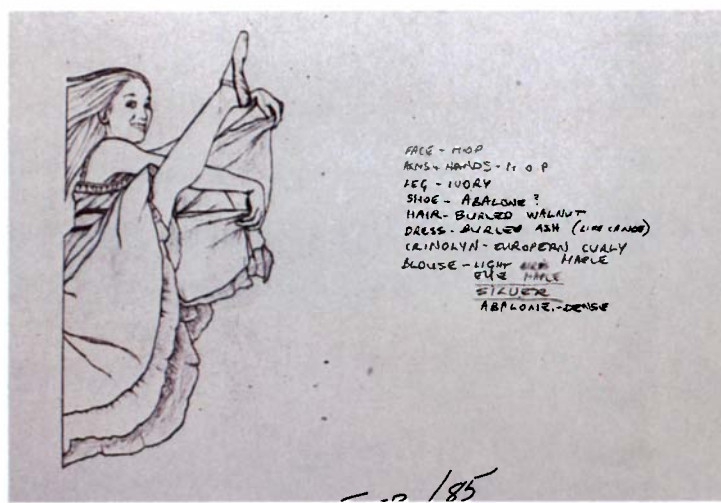 FACE - M.O.P
ARMS + HANDS - M O P
LEG - IVORY
SHOE - ABALONE ?
HAIR - BURLED WALNUT
DRESS - BURLED ASH (LIKE CANOE)
CRINOLYN - EUROPERN CURLY
MAPLE
BLOUSE - LIGHT
EYE MAPLE
SILVER
ABALONE. - DENSE
/85